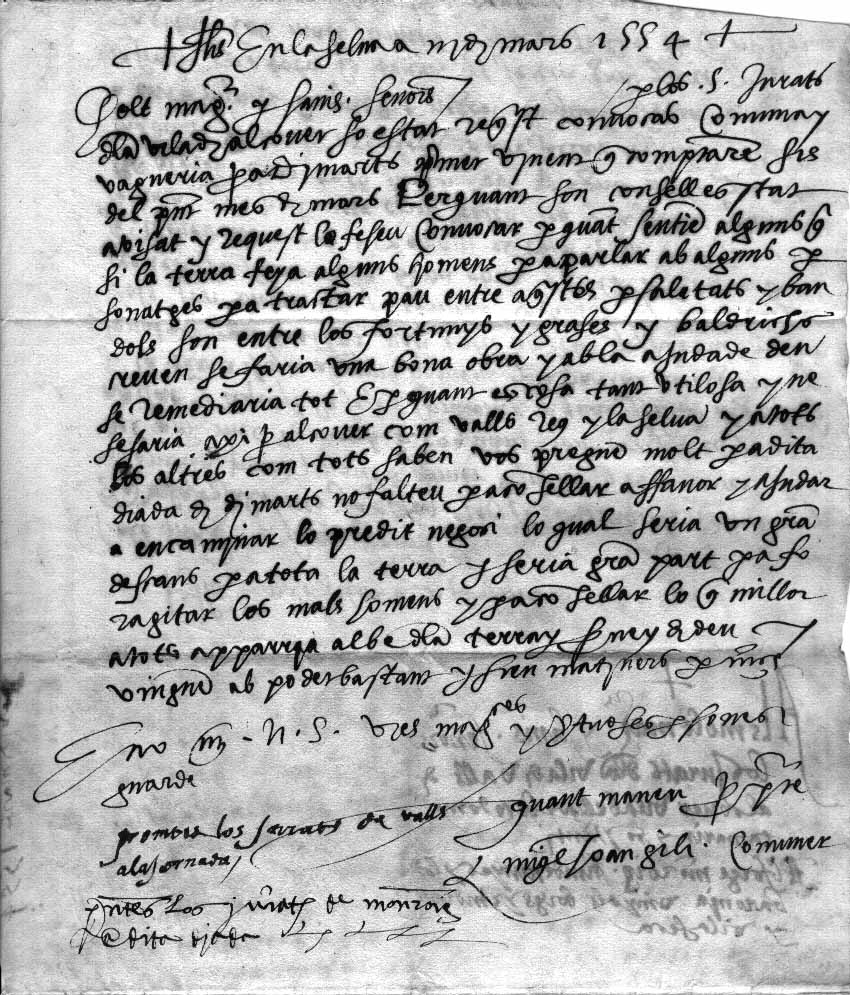 + Jhs En la selva a iij de mars 1554 +
Molt magchs y savis senors p los S. Jurats
dla vila de alcover so estat reqst convocas Comuna y
vagueria p a dimarts primer vinent q comptarem sis
del pnt mes de mars Per quant son consell es stat
avisat y request lo feseu Convocar p quant sentie alguns q
si la terra feya alguns homens p a parlar ab alguns p
sonatges p a tractar pau entre aqstes psaletats y ban
dols son entre los fortunys y grases y baldrichs
creuen se faria una bona obra y ab la aiudade deu
se remediaria tot E p quant es cosa tant utilosa y ne
sesaria axi p alcover com valls reus y la selva y a tots
los altres com tots saben vos pregue molt p a dita
diada de dimarts no falteu p aconsellar affavor y aiudar
a encaminar lo predit negosi lo qual seria un gra
descans p a tota la terra y seria gra part p a fo
ragitar los mals homens y p aconsellar lo q millor
a tots apparra al be dla terra y servey de deu
vingue ab poder bastant y sien matiners
E no m - N. S. vres magces y vrtuoses psones
guarde
promtes los jurats de valls
a la jornada
quant maneu p pre
migel Joan gili Comuner
pntes los jurats de monroig
a dita diada